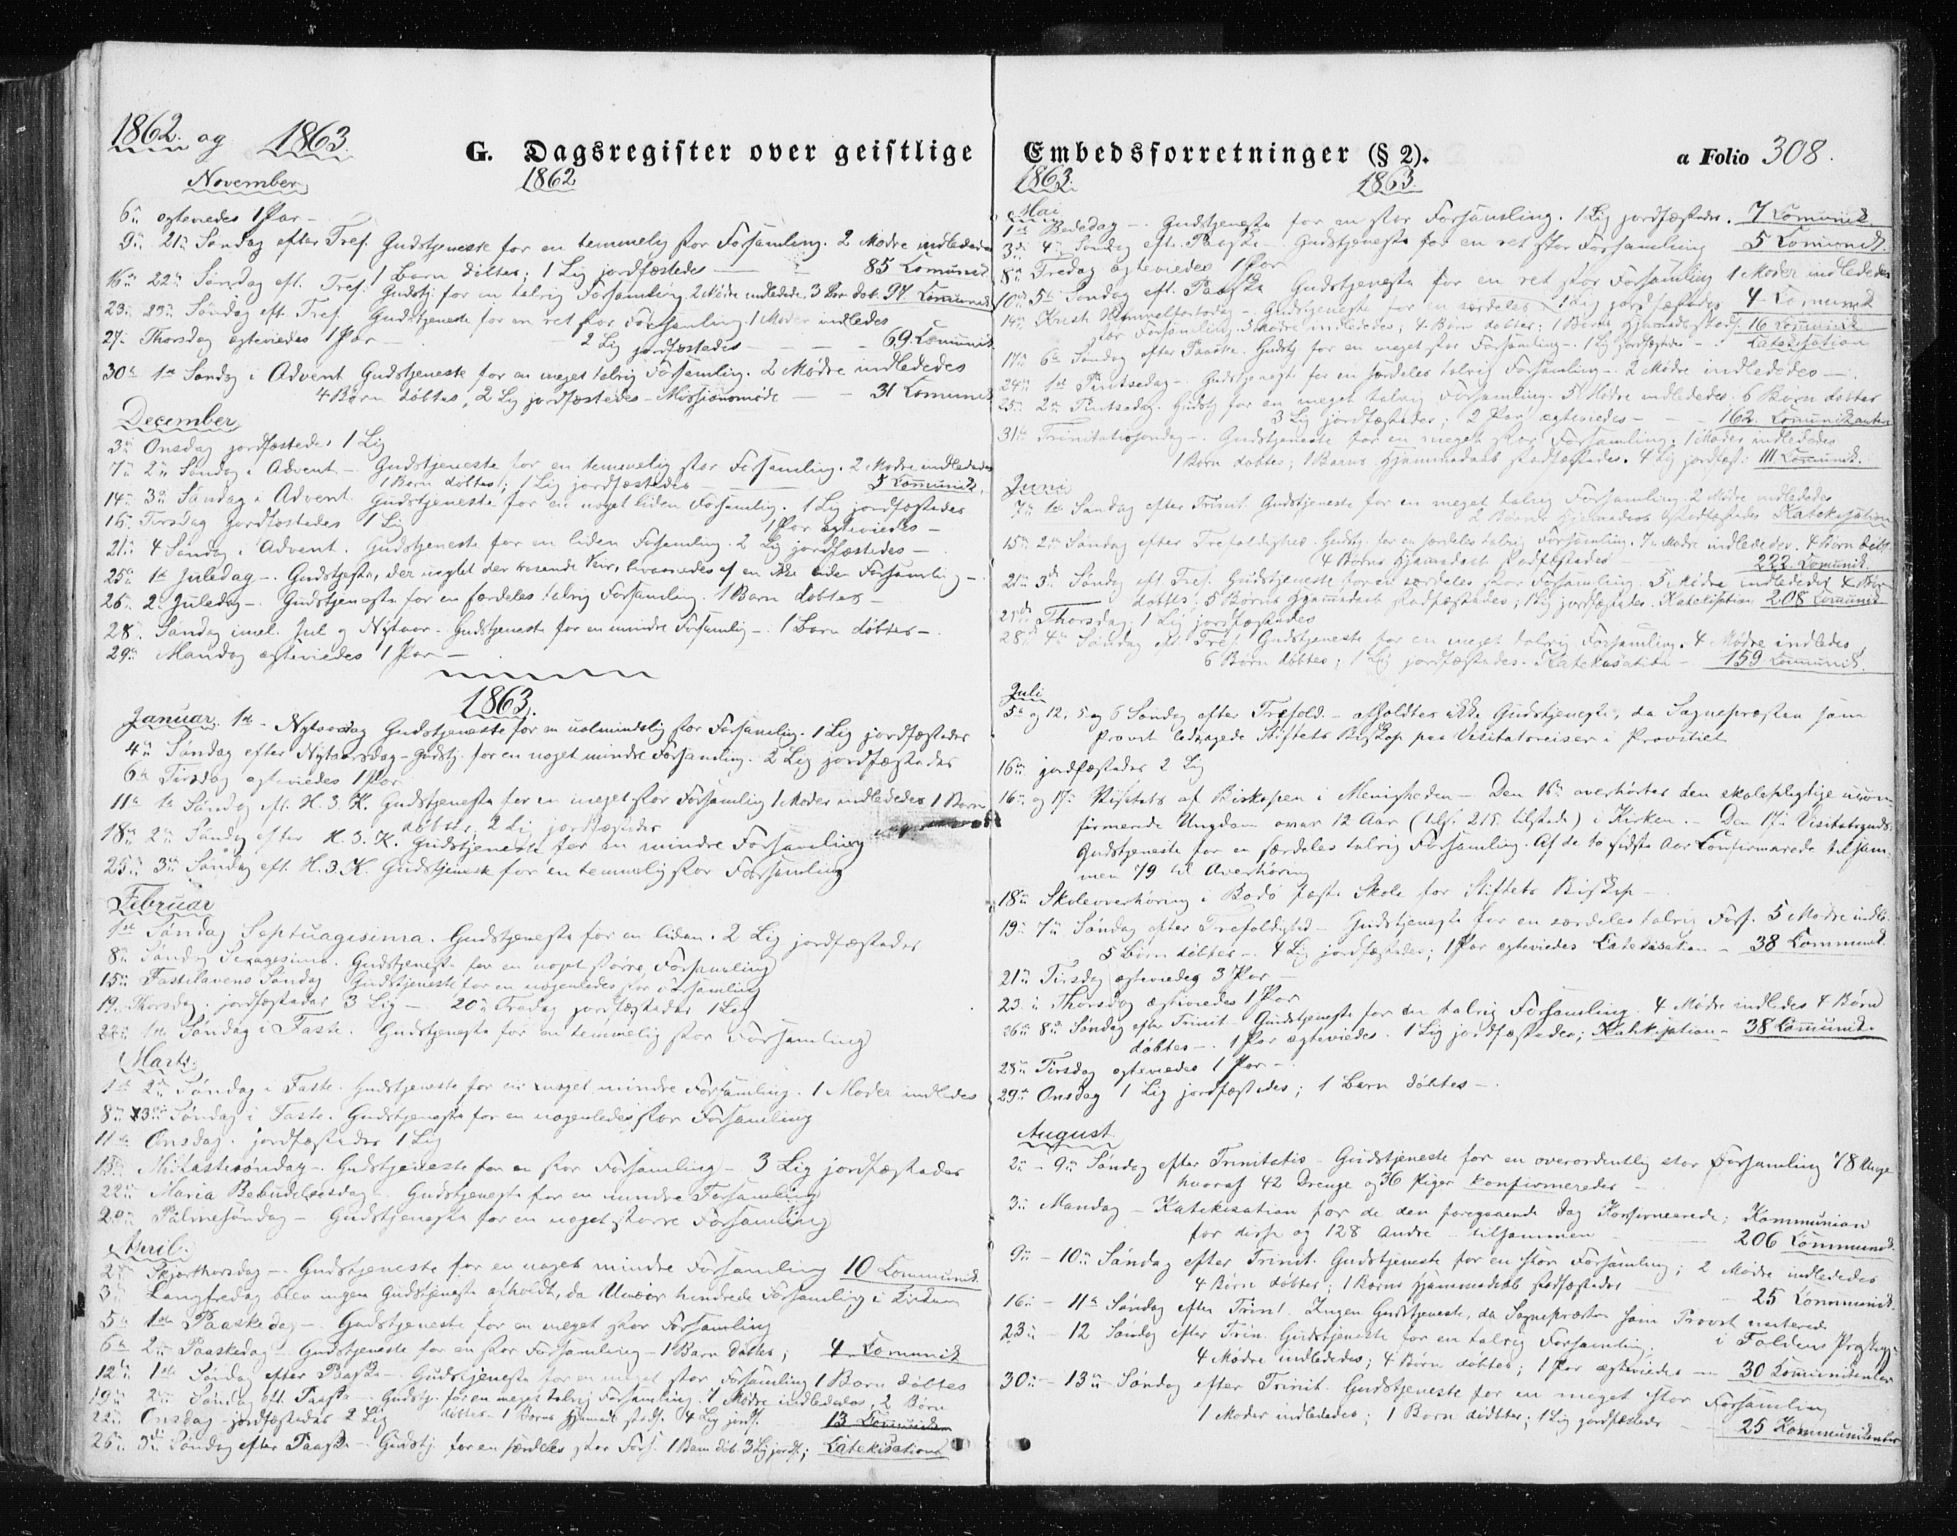 1862 og 1863
G. Dagsregister over geistlige
1862
November
6te ægteviedes 1 Par -
9de 21de Søndag efter Tref. Gudstjeneste for en temmelig stor Forsamling. 2 Mødre indledede
1 Barn døbtes; 1 Lig jordfæstedes - 85 Comunik.
16de 22de Søndag eft. Tref. Gudstj. for en talrig Forsamling. 2 Mødre indledede. 3 Børn døb. Comunik
23de Søndag eft. Tref. Gudstjeneste for en ret stor Forsamling. 1 Moder indledes
27de Thorsdag ægteviedes 1 Par 2 Lig jordfæstedes - 69. Comunik.
30te 1ste Søndag i Advent Gudstjeneste for en meget talrig Forsamling. 2 Mødre indledes
4 Børn døbtes, 2 Lig jordfæstedes - Missionsmøde - 31 Comunik
December
3die Onsdag jordfæstedes 1 Lig
7de 2den Søndag i Advent - Gudstjeneste for en temmelig stor Forsamling. 2 Mødre indledede
1 Barn døbtes; 1 Lig jordfæstedes - 5 Comunik.
14de 3die Søndag i Advent. Gudstjeneste for en noget liden Forsamling. 1 Lig jordfæstedes
16. Tirsdag jordfæstedes 1 Lig 1 Par ægteviedes -
21de 4 Søndag i Advent. Gudstjeneste for en liden Forsamling. 2 Lig jordfæstedes -
25de 1ste Juledag -. Gudstjeneste, der uagtet det rasende Veir, bivaanedes af en ikke liden Forsamling -
26. 2. Juledag -. Gudstjeneste for en særdeles talrig Forsamling. 1 Barn døbtes -
28. Søndag imel. Jul og Nytaar. Gudstjeneste for en mindre Forsamlig -. 1 Barn døbtes -.
29de Mandag ægteviedes 1 Par -
1863.
Januar. 1ste - Nytaarsdag Gudstjeneste for en ualmindelig stor Forsamling. 1 Lig jordfæstedes
4de Søndag efter Nytaarsdag - Gudstj. for en noget mindre Forsamling. 2 Lig jordfæstedes
6te Tirsdag ægteviedes 1 Par
11te 1ste Søndag eft. H. 3. K. Gudstjeneste for en meget stor Forsamlig 1 Moder indledede 1 Barn
døbtes; 2 Lig jordfæstedes
18de 2den Søndag efter H. 3. K. Gudstjeneste for en mindre Forsamling
25de 3die Søndag eft. H. 3. K. Gudstjeneste for en temmelig stor Forsamling
Februar
1ste Søndag Septuagesima. Gudstjeneste for en liden. 2 Lig jordfæstedes
8de Søndag Sexagesima. Gudstjeneste for en noget større Forsamling
15de Fastelavens Søndag Gudstjeneste for en nogenledes stor Forsamling
19. Thorsdag. jordfæstedes 3 Lig - 20de Fredag jordfæstedes 1 Lig
22de 1ste Søndag i Faste. Gudstjeneste for en temmelig stor Forsamling
Marts.
1ste 2den Søndag i Faste. Gudstjeneste for en noget mindre Forsamling. 1 Moder indledes
8de 3die Søndag i Faste. Gudstjeneste for en nogenledes stor Forsamling
11te Onsdag. jordfæstedes 1 Lig
15de Midfastesøndag -. Gudstjeneste for en stor Forsamling - 3 Lig jordfæstedes
22de Maria Bebudelsesdag - Gudstjeneste for en mindre Forsamling
29de Palmesøndag - Gudstjeneste for en noget større Forsamling
April.
2den Skjærthorsdag - Gudstjeneste for en noget mindre Forsamling 10 Communik.
3die Langfredag blev ingen Gudstjeneste afholdt, da Uveir hindrede Forsamling i Kirken
5te 1ste Paaskedag - Gudstjeneste for en meget stor Forsamling
6te 2den Paaskedag - Gudstjeneste for en stor Forsamling - 1 Barn døbtes; 4 Comunik
12te 1ste Søndag efter Paaske - Gudstjeneste for en meget stor Forsamling 1 Barn døbtes
19de 2den Søndag eft. Paaske - Gudstj. for en meget talrig Forsamling. 7 Mødre indledede, 2 Børn
døbtes - 1 Barns Hjemmed. stadf. 4 Lig jordf. 13 Comunik
22de Onsdag - jordfæstedes 2 Lig
26de 3die Søndag efter Paaske - Gudstj. for en særdeles stor Fors. 1 Barn døb. 3 Lig jordf.; Catekisation
Embedsforretninger (§ 2).
a Folio 308.
1863. 1863.
Mai
1ste Bededag -. Gudstjeneste for en stor Forsamling. 1 Lig jordfæstedes. 7 Comunik.
3die 4de Søndag eft. Paaske - Gudstjeneste for en ret stor Forsamling 5 Comunik.
8de Fredag ægteviedes 1 Par
10de 5te Søndag eft. Paaske Gudstjeneste for en ret stor Forsamling 1 Moder indledede
1 Lig jordfæstedes 4 Comunik
14de Kristi Himmelfartsdag - Gudstjeneste for en særdeles
stor Forsamling. 3 Mødre indledede; 4 Børn døbtes; 1 Barns Hjemmedaab stadf. 16 Comunik
17de 6te Søndag efter Paaske. Gudstj. for en meget stor Forsamling -. 1 Lig jordfæstedes - Catekisation
24de 1ste Pintsedag -. Gudstjeneste for en særdeles talrig Forsamling - 2 Mødre indledede -
25de 2den Pintsedag. Gudstj. for en meget talrig Forsamling. 5 Mødre indledede. 6 Børn døbtes
3 Lig jordfæstedes; 2 Par ægteviedes - 162. Comunikanter
31te Trinitatissøndag -. Gudstjeneste for en meget stor Forsamling. 1 Moder indledede
1 Barn døbtes; 1 Barns Hjemmedaab stadfæstedes. 4 Lig jordfæs: 111 Comunik.
Juni
7de 1ste Søndag efter Trinit. Gudstjeneste for en meget talrig Forsamling. 2 Mødre indledede
2 Børns Hjemmedaab stadfæstedes Katekisation
15de 2den Søndag efter Trefoldighed - Gudstj. for en særdeles talrig Forsamling. 7 Mødre indledede. 4 Børn døbt.
4 Børns Hjemmedaab stadfæstedes - 222 Comunik.
21de 3die Søndag eft. Tref. Gudstjeneste for en særdeles stor Forsamling. 5 Mødre indledede 4 Børn
døbtes; 5 Børns Hjemmedaab stadfæstedes; 1 Lig jordfæstedes. Katekisation 208 Comunik
Thorsdag; 1 Lig jordfæstedes
28de 4de Søndag eft. Tref. Gudstjeneste for en meget talrig Forsamling. 4 Mødre indledes
6 Børn døbtes; 1 Lig jordfæstedes. Katekisation - 159 Comunik.
Juli
5te og 12. 5 og 6 Søndag efter Trefold. - Afholdtes ikke Gudstjeneste, da Sognepræsten som
Provst ledsagede Stiftets Biskop paa Visitatsreiser i Provstiet
16de jordfæstedes 2 Lig
16de og 17de Visitats af Biskopen i Menigheden - Den 16de overhørtes den skolepligtige ucon-
firmerede Ungdom over 12 Aar (tils. 215 tilstede) i Kirken. - Den 17de Visitatsguds-
Gudstjeneste for en særdeles talrig Forsamling. Af de to sidste Aar Confirmerede tilsam-
men 79 til Overhøring
18de Skoleoverhøring i Bodø faste Skole for Stiftets Biskop -
19de 7de Søndag efter Trefoldighed - Gudstjeneste for en særdeles talrig Fors. 5 Mødre indle.
5 Børn døbtes - 4 Lig jordfæstedes; 1 Par ægteviedes Catekisation - 38 Communik.
21de Tirsdag ægteviedes 3 Par -
23de Thorsdag ægteviedes 1 Par
26de 8de Søndag efter Trinit - Gudstjeneste for en talrig Forsamling 4 Mødre indledes 4 Børn
døbtes -. 1 Par ægteviedes. 1 Lig jordfæstedes; Katekisation - 38 Communik.
28de Tirsdag ægteviedes 1 Par -.
29de Onsdag 1 Lig jordfæstedes; 1 Barn døbtes -.
August
2den - 9de Søndag efter Trinitatis - Gudstjeneste for en overordentlig stor Forsamling 78 Unge
hvoraf 42 Drenge og 36 Piger konfirmeredes -
3die Mandag - Katekisation for de den foregaaende Dag Konfirmerede; Kommunion
for disse og 128 Andre - tilsammen - 206 Communik.
9de - 10de Søndag efter Trinit. Gudstjeneste for en stor Forsamling; 2 Mødre indledede
4 Børn døbtes; 1 Barns Hjemmedaab stadfæstedes 25 Communik.
16de - 11te Søndag efter Trinit. Ingen Gudstjeneste, da Sognepræsten som Provst visiterede
i Foldens Præstegj.
23de - 12 Søndag efter Trin. Gudstjeneste for en talrig Forsamling;
4 Mødre indledede; 4 Børn døbtes; 1 Par ægteviedes - 30 Comunikanter
30te - 13de Søndag efter Trinit. Gudstjeneste for en meget stor Forsamling
1 Moder indledede; 1 Barn døbtes; 1 Lig jordfæstedes - 25 Kommunikanter